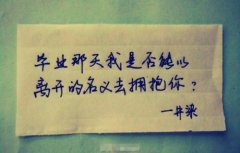 毕业那天我是否能以
离开的名义去拥抱你？
一井梁